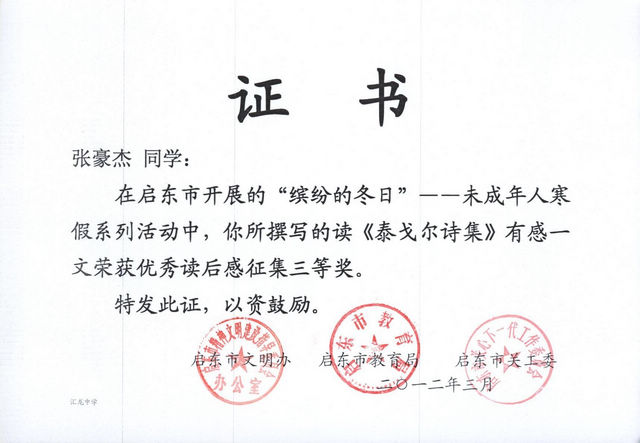 证 书
张豪杰 同学：
在启东市开展的“缤纷的冬日”——未成年人寒
假系列活动中，你所撰写的读《泰戈尔诗集》有感一
文荣获优秀读后感征集三等奖。
特发此证，以资鼓励。
启东市文明办 启东市教育局 启东市关工委
办公室
启东市教育局
二〇一二年三月
汇龙中学